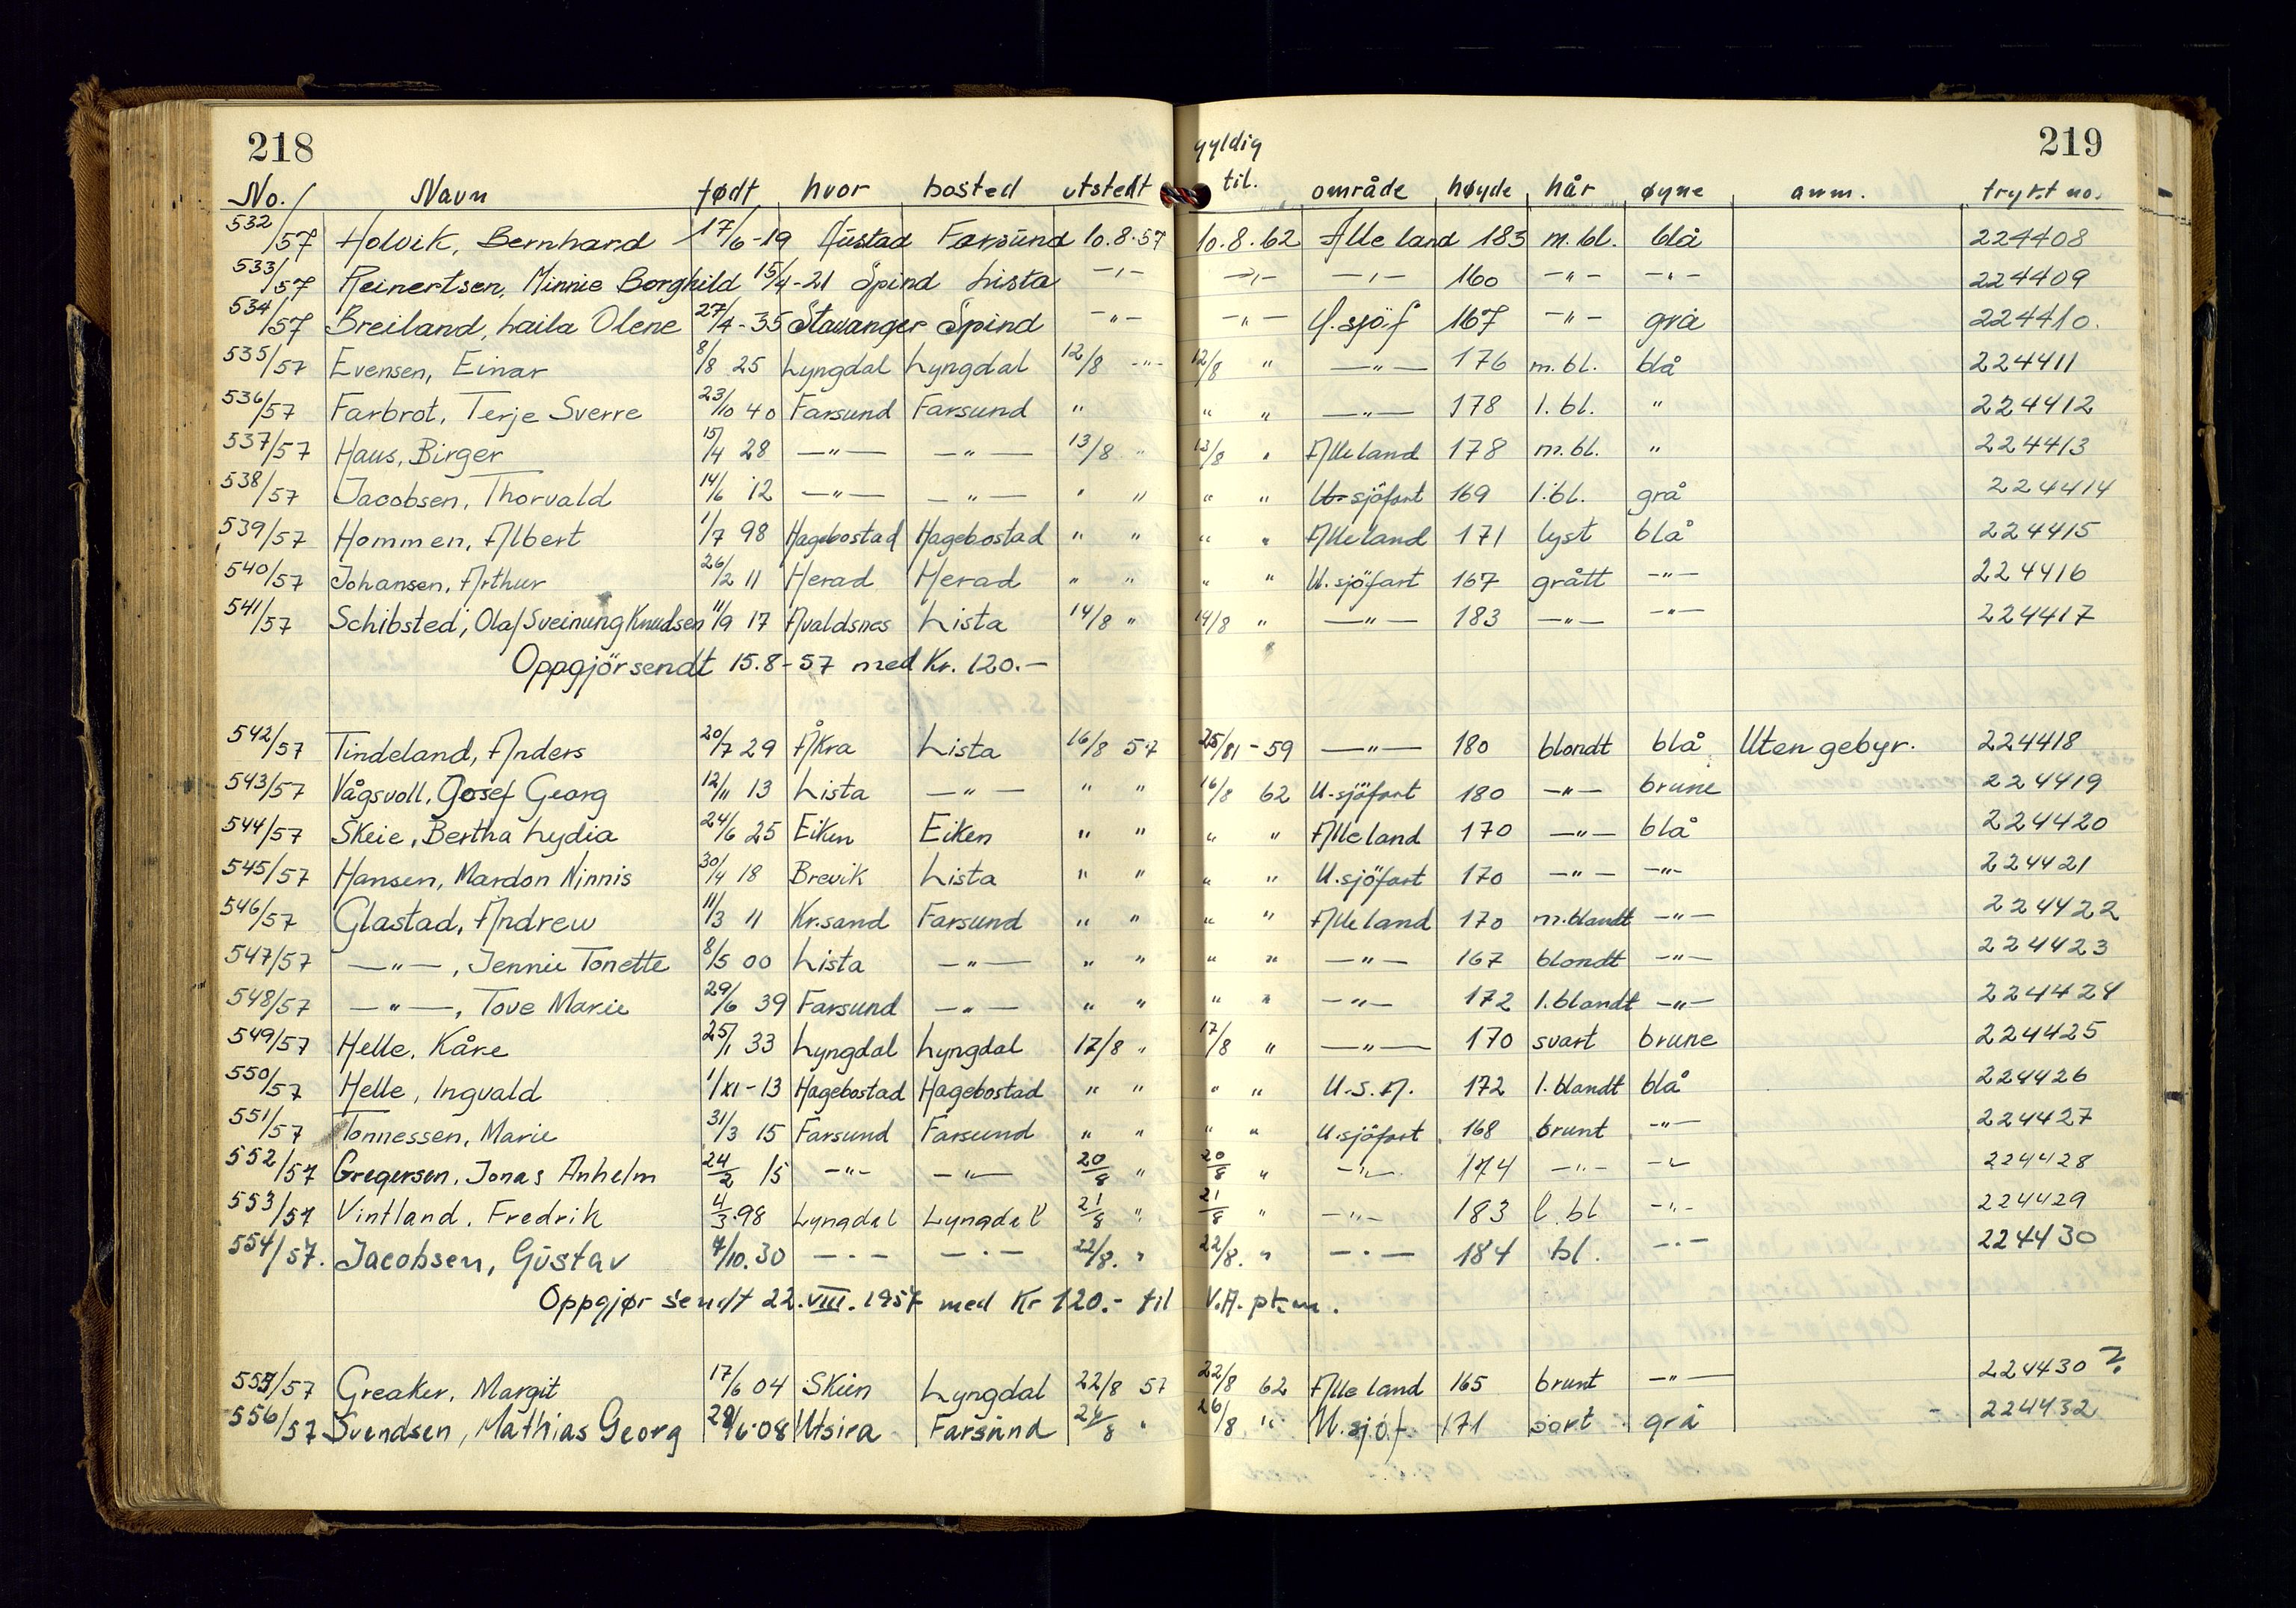 218
219
gyldig
No. / Navn født hvor bosted utstedt til. område høyde hår øyne anm. trykt no.
532/57 Holvik, Bernhard 17/6-19 Austad Farsund 10.8.57 10.8.62 Alle land 183 m.bl. blå 224408
533/57 Reinertsen, Minnie Borghild 15/4-21 Spind Lista -"- -"- -"- 160 -"- -"- 224409
534/57 Breiland, Laila Olene 27/4-35 Stavanger Spind -"- -"- U.sjöf 167 -"- grå 224410.
535/57 Evensen, Einar 8/8 25 Lyngdal Lyngdal 12/8 -"- 12/8 " -"- 176 m.bl. blå 224411
536/57 Farbrot, Terje Sverre 23/10 40 Farsund Farsund " " " -"- 178 l.bl. " 224412
537/57 Haus, Birger 15/4 28 -"- -"- 13/8 " 13/8 " Alle land 178 m.bl. " 224413
538/57 Jacobsen, Thorvald 14/6 12 -"- -"- " " " " U. sjöfart 169 l.bl. grå 224414
539/57 Hommen, Albert 1/7 98 Hagebostad Hagebostad " " " " Alle land 171 lyst blå 224415
540/57 Johansen, Arthur 26/2 11 Herad Herad " " " " U. sjöfart 167 grått -"- 224416
541/57 Schibsted, Olaf Sveinung Knudsen 11/9 17 Avaldsnes Lista 14/8 " 14/8 " -"- 183 -"- -"- 224417
Oppgjör sendt 15.8-57 med Kr. 120.-
542/57 Tindeland, Anders 20/7 29 Åkra Lista 16/8 57 25/81-59 -"- 180 blondt blå Uten gebyr. 224418
543/57 Vågsvoll, Josef Georg 12/11 13 Lista -"- " " 16/8 62 U.sjöfart 180 -"- brune 224419
544/57 Skeie, Bertha Lydia 24/6 25 Eiken Eiken " " " " Alle land 170 -"- blå 224420
545/57 Hansen, Mardon Ninnis 30/4 18 Brevik Lista " " " " U.sjöfart 170 -"- -"- 224421
546/57 Glastad, Andrew 11/3 11 Kr.sand Farsund " " " " Alle land 170 m.blandt -"- 224422
547/57 -"-, Jennie Tonette 8/5 00 Lista -"- " " " " -"- 167 blondt -"- 224423
548/57 -"-, Tove Marie 29/6 39 Farsund -"- " " " " -"- 172 l.blandt -"- 224424
549/57 Helle, Kåre 25/1 33 Lyngdal Lyngdal 17/8 " 17/8 " -"- 170 svart brune 224425
550/57 Helle, Ingvald 1/XI-13 Hagebostad Hagebostad " " " " U.S.A. 172 l.blandt blå 224426
551/57 Tonnessen, Marie 31/3 15 Farsund Farsund " " " " U.sjöfart 168 brunt -"- 224427
552/57 Gregersen, Jonas Anhelm 24/2 15 -"- -"- 20/8 " 20/8 " -"- 174 -"- -"- 224428
553/57 Vintland, Fredrik 4/3.98 Lyngdal Lyngdal 21/8 " 21/8 " -"- 183 l.bl -"- 224429
554/57. Jacobsen, Gustav 4/10.30 -"- -"- 22/8. " 22/8. " -"- 184 bl. -"- 224430
Oppgjør sendt 22.VIII.1957 med Kr 120.- til V.A. ptkm.
555/57 Greaker, Margit 17/6 04 Skien Lyngdal 22/8 57 22/8 62 Alle land 165 brunt -"- 224430 ?
556/57 Svendsen, Mathias Georg 29/6.08 Utsira Farsund 26/8 " 26/8 " U.sjöf 171 sort grå 224432